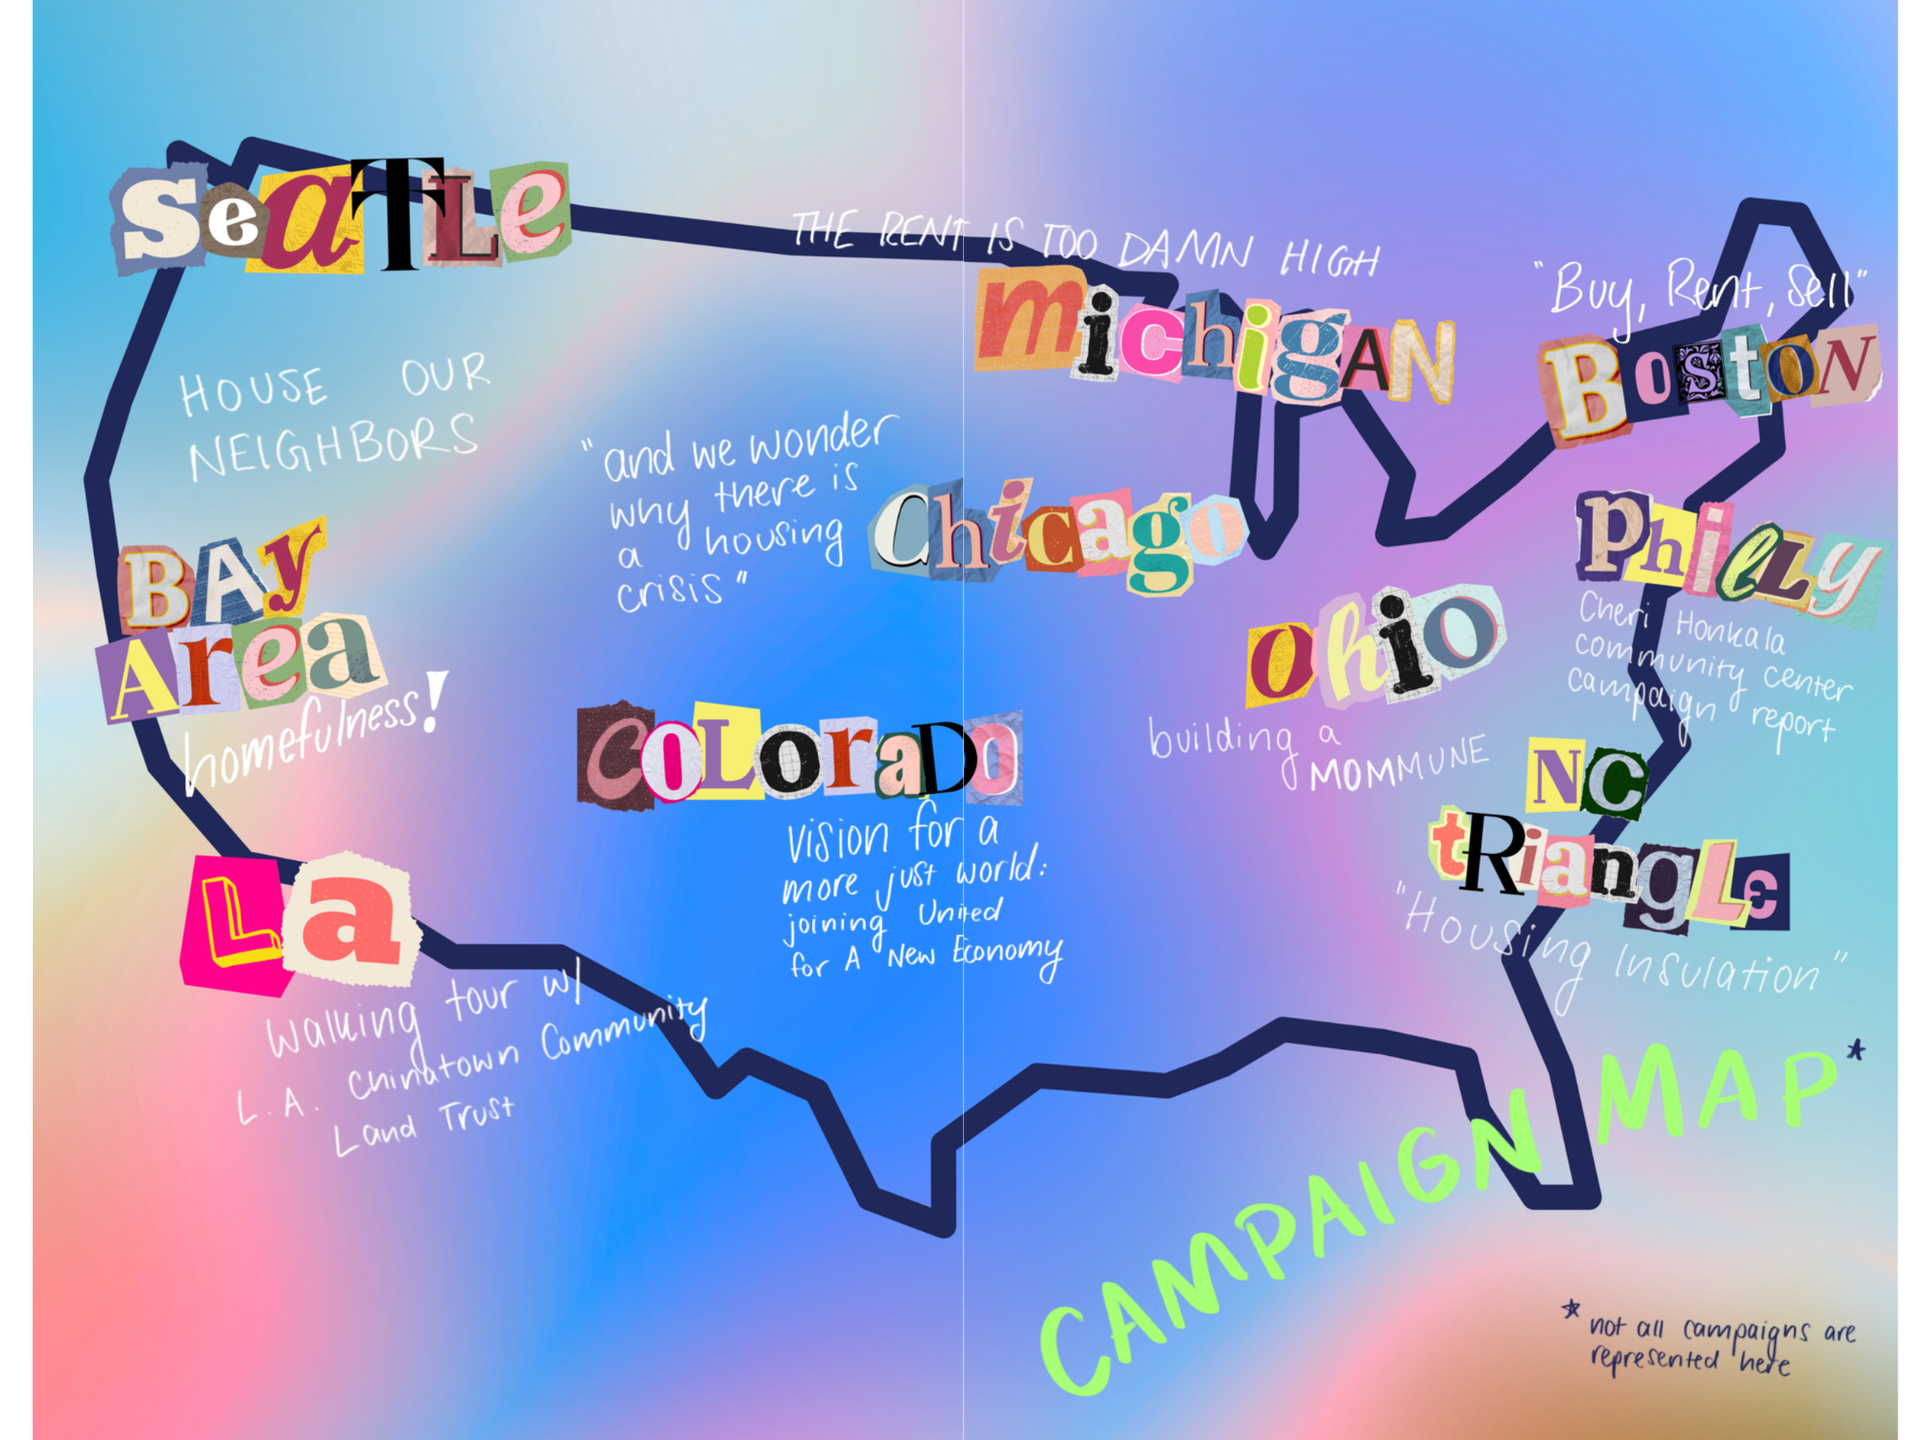 SeaTLe
HOUSE OUR
NEIGHBORS
THE RENT IS TOO DAMN HIGH
michigAN
"Buy, Rent, Sell"
BostoN
"and we wonder
why there is
a housing
crisis"
Chicago
phiLLy
Cheri Honkala
community center
campaign report
BAy
Area
homefulness!
Ohio
building a
MOMMUNE
COLoraDo
vision for a
more just world:
joining United
for A New Economy
NC
tRiangLe
"Housing Insulation"
La
Walking tour w/
L.A. Chinatown Community
Land Trust
CAMPAIGN MAP*
* not all campaigns are
represented here